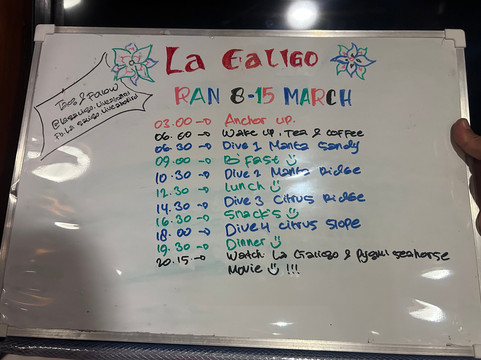 LA GALIGO
RAN 8-15 MARCH
Tag & Follow
03.00 → Anchor up.
06.00 → Wake up, Tea & Coffee
06.30 → Dive 1 Manta Sandy
09.00 → B'Fast ☺
10.30 → Dive 2 Manta Ridge
12.30 → Lunch ☺
14.30 → Dive 3 Citrus Ridge
16.30 → Snacks ☺
18.00 → Dive 4 Citrus Slope
19.30 → Dinner ☺
20.15 → Watch La Galigo & Pygmi seahorse
Movie ☺ !!!